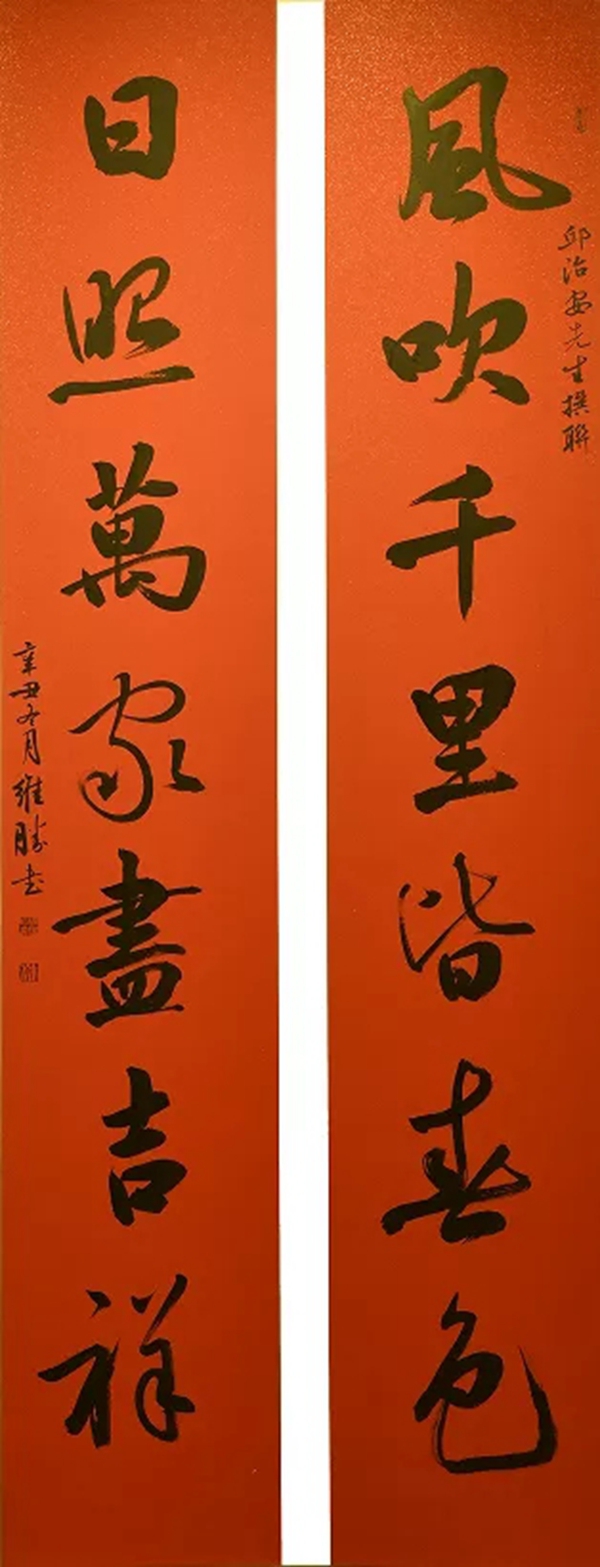 風吹千里皆春色
邱治安先生撰聯
日照萬家盡吉祥
辛丑冬月維勝书